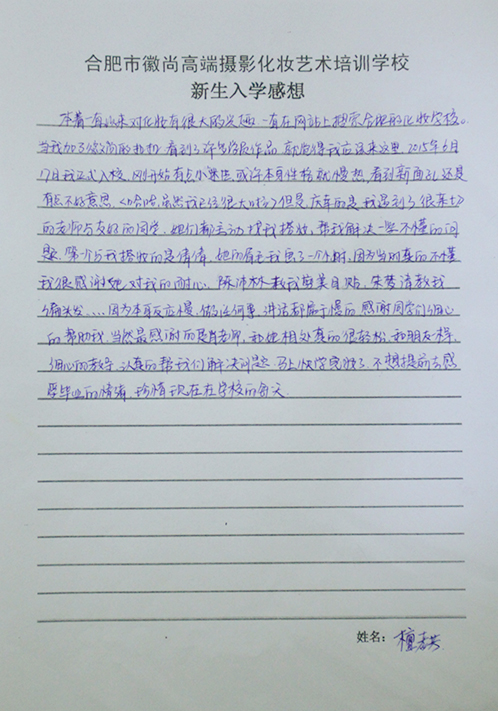 合肥市徽尚高端摄影化妆艺术培训学校
新生入学感想
本着一直以来对化妆有很大的兴趣 一直在网站上搜索合肥的化妆学校。
当我加了徽尚的 看到了许多学员作品 就觉得我应该来这里. 2015年6月
17日我正式入校. 刚开始有点小迷茫, 或许本身性格就慢热, 看到新面孔, 还是
有点不好意思. 《哈哈, 虽然我已经很大了》但是 庆幸的是 我遇到了很亲切
的老师与友好的同学. 她们都主动找我搭讪, 帮我解决一些不懂的问
题. 第一个与我搭讪的是倩倩, 她的眉毛我画了一个小时, 因为当时真的不懂
我很感谢她 对我的耐心. 陈沛林教我 美目贴, 朱梦清教我
头发.... 因为本身反应慢, 做任何事, 讲话都属于慢的 感谢同学们细心
的帮助我. 当然最感谢的是 老师, 和她相处真的很轻松, 和朋友样.
细心的教导, 认真的帮我们解决问题. 马上快学完妆了. 不想提前去感
受毕业的情绪, 珍惜现在在学校的每天.
姓名:檀